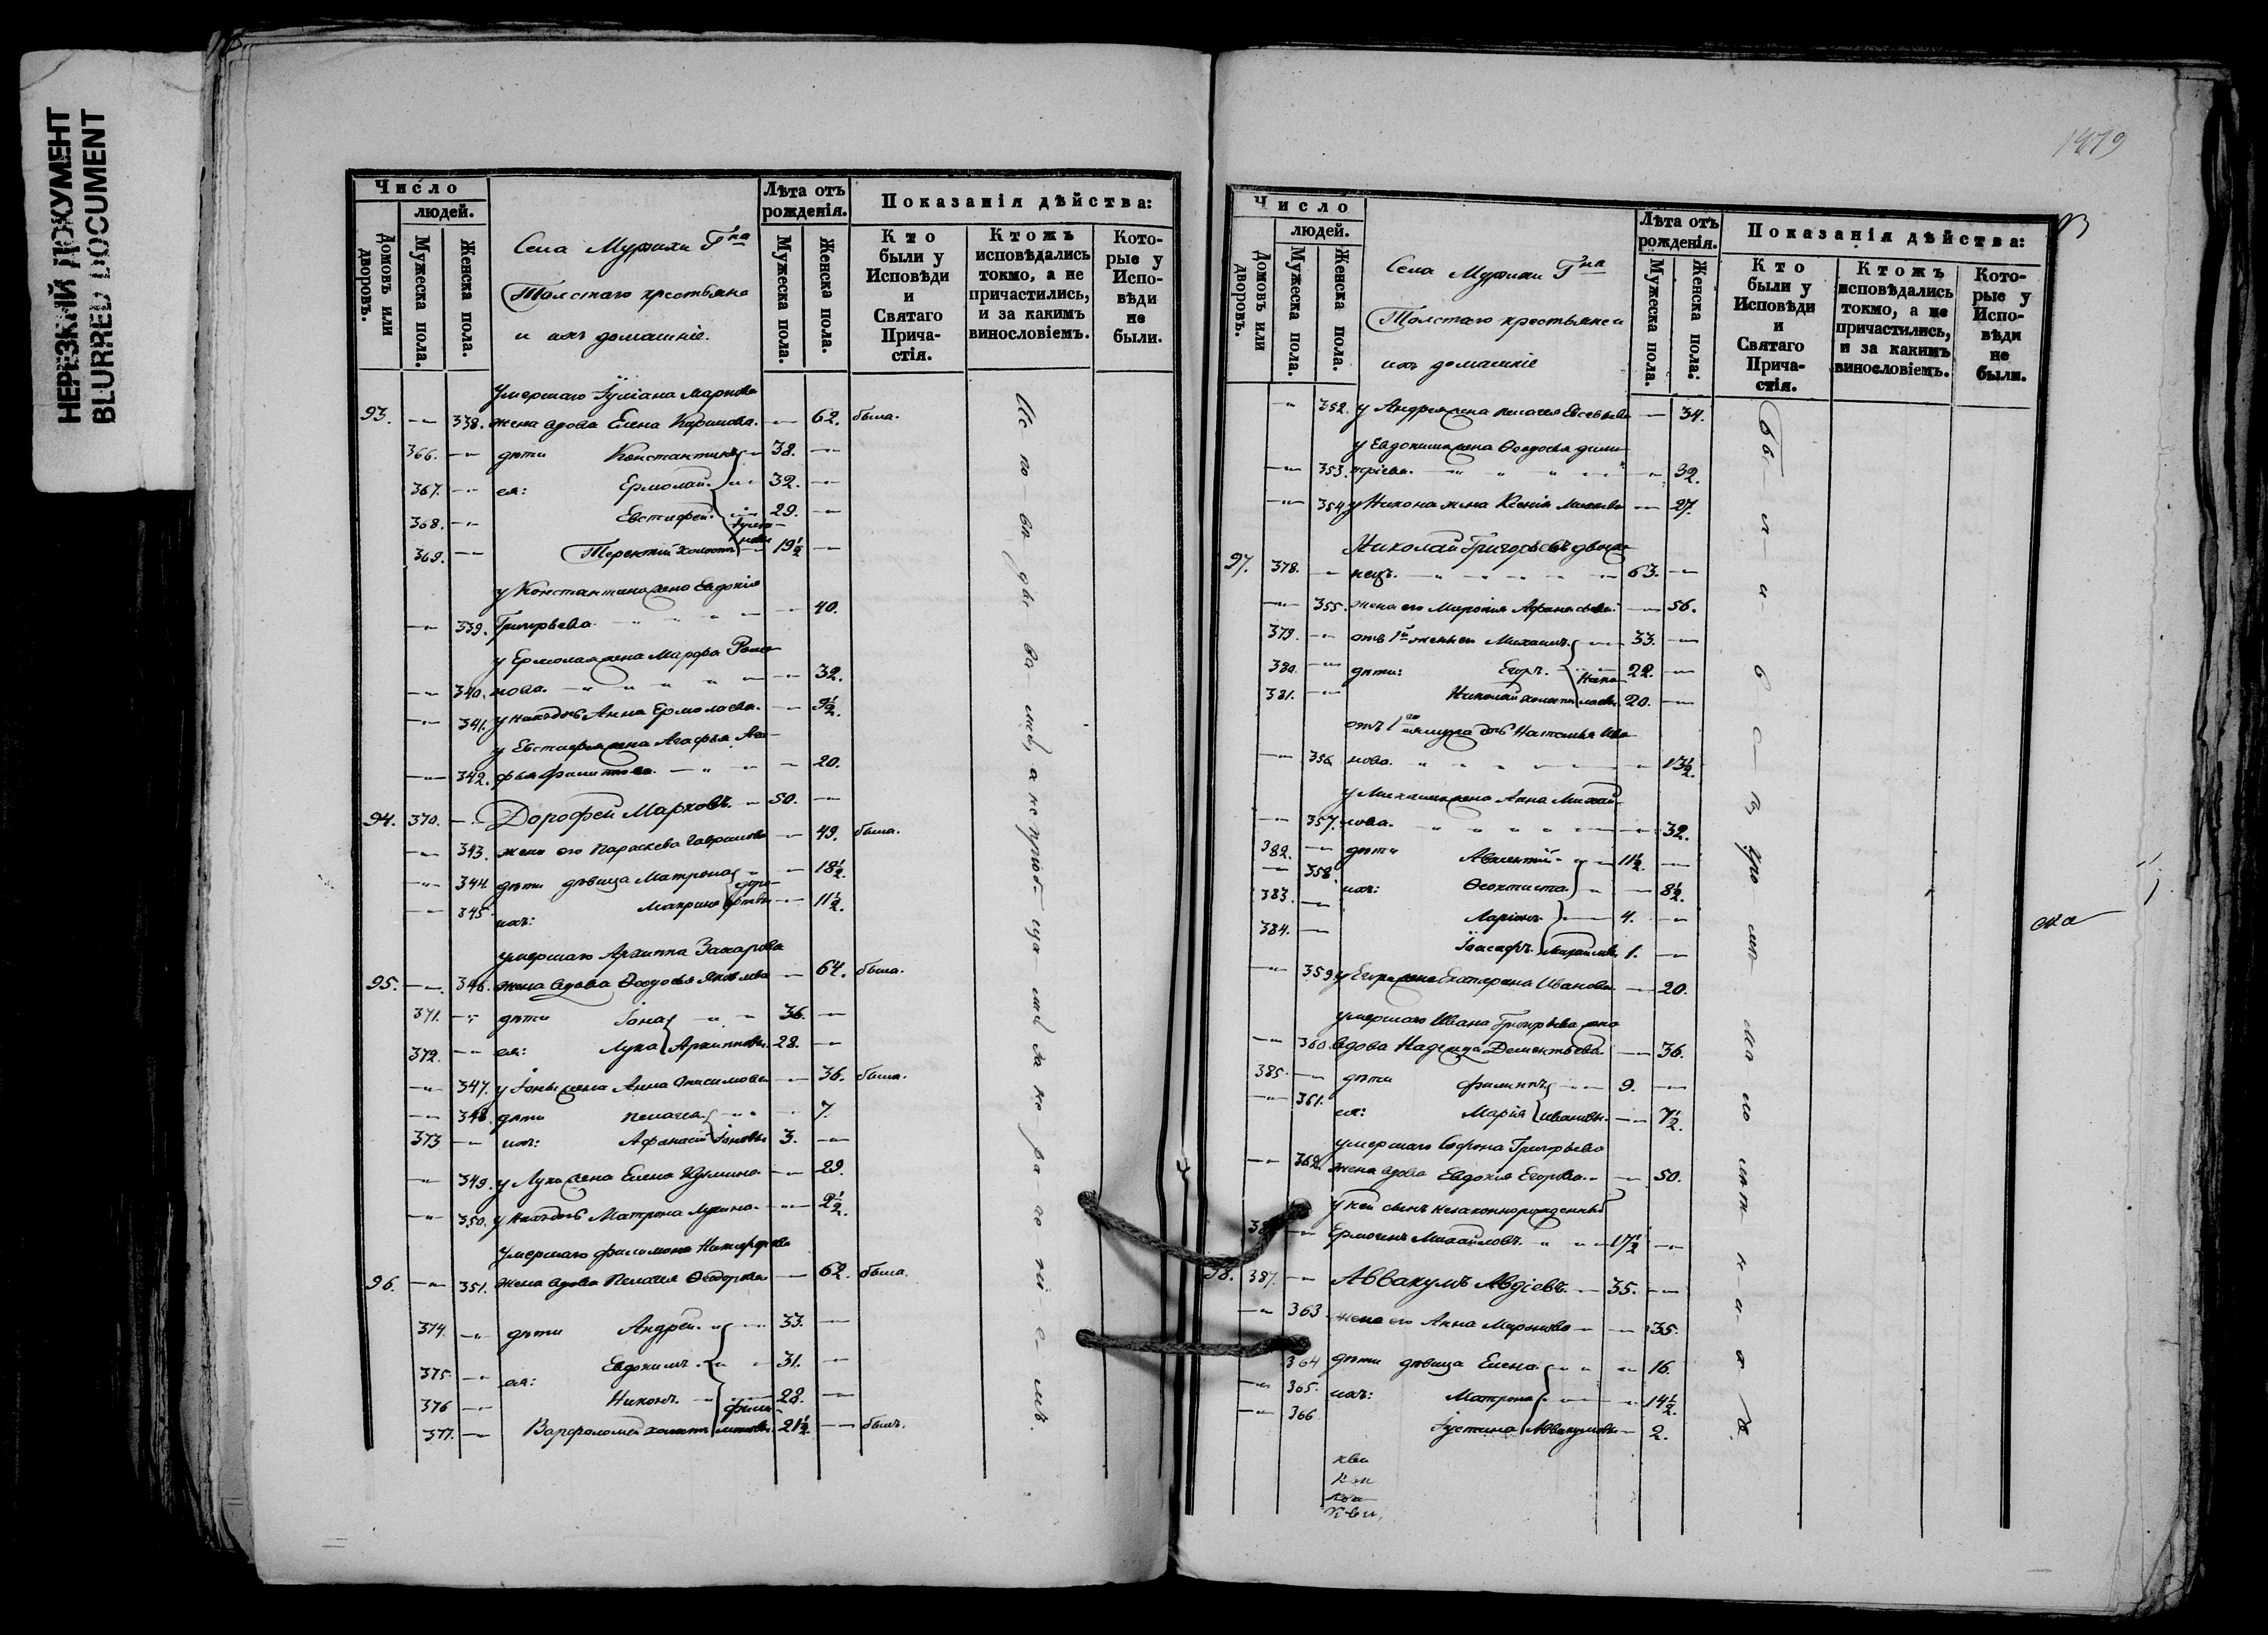 НЕРЕЗКИЙ ДОКУМЕНТ
BLURRED DOCUMENT
Число
людей.
Домовъ или дворовъ.
Мужеска пола.
Женска пола.
Села Гна
Толстаго крестьяне
и ихъ домашніе.
Лѣта отъ рожденія.
Мужеска пола.
Женска пола.
Показанія дѣйства:
Кто были у Исповѣди и Святаго Прича-стія.
Ктожъ исповѣдались токмо, а не причастились, и за какимъ винословіемъ.
Кото-рые у Испо-вѣди не были.
умершаго Іуліана Маркова
93. 338. жена вдова Елена 62. была.
366. дѣти Константинъ 38.
367. ея: Ермолай 32.
368. Евстифей 29.
369. Терентій холостъ 19½
у Константина жена Евдокія
339. Григорьева 40.
у Ермолая жена Марфа Рома-
340. нова. 32.
341. у нихъ дочь Анна Ермолаева. 9½.
у Евстифея жена Агафья Ага-
342. фья Филиппова 20.
94. 370. Дорофей Марковъ. 50.
343. жена его Параскева 49. была.
344. дѣти дѣвица Матрона 18½.
345. ихъ: 11½.
умершаго Архиппа Захарова
95. 346. жена вдова Ѳеодосья Яковлева 64. была.
371. дѣти Іона 36.
372. ея: Лука Архиповы. 28.
347. у Іоны жена Анна 36. была.
348. дѣти Пелагея 7.
373 ихъ: Афанасій Іоновы 3.
349. у Луки жена Елена 29.
350. у нихъ дочь Матрона Лукина. 2½.
умершаго Филимона
96. 351. жена вдова Пелагея Ѳеодорова 62. была.
374. дѣти Андрей. 33.
375. ея: Евдокимъ 31.
376 Никонъ. 28.
377. Варфоломей холостъ 21½. былъ.
Исповѣдывались, а не пріобщались за нерадѣніемъ.
1479
Число
людей.
Домовъ или дворовъ.
Мужеска пола.
Женска пола.
Села Гна
Толстаго крестьяне и
ихъ домашніе
Лѣта отъ рожденія.
Мужеска пола.
Женска пола.
Показанія дѣйства:
Кто были у Исповѣди и Святаго Прича-стія.
Ктожъ исповѣдались токмо, а не причастились, и за какимъ винословіемъ.
Кото-рые у Испо-вѣди не были.
352. у Андрея жена Пелагея 34.
у Евдокима жена Ѳеодосья Дими-
353. тріева. 32.
354 у Никона жена Ксенія 27.
Николай Григорьевъ двое-
97. 378. нецъ. 63.
355. жена его Афанасьева 56.
379. отъ 1й жены Михаилъ 33.
380. дѣти: Егоръ. 22.
381. Николай холостъ 20.
отъ 1го мужа дочь Наталья Ива-
356. нова 13½.
у Михаила жена Анна Михай-
357. лова. 32.
382. дѣти 11½.
358. ихъ: Ѳеоктиста 8½.
383. Ларіонъ 4.
384. Іоасафъ Михайловы 1.
359 у Егора жена Екатерина Иванова 20.
умершаго Ивана Григорьева жена
360. вдова Надежда Дементьева 36.
385. дѣти Филиппъ 9.
361. ея: Марія Ивановы. 7½.
умершаго Софона Григорьева
362. жена вдова Евдокія Егорова. 50.
у ней сынъ незаконнорожденный
Ермогенъ Михайловъ. 17½
98. 387. Аввакумъ Авдіевъ. 35.
363 жена его Анна Миронова 35.
364 дѣти дѣвица Елена 16
365. ихъ: Матрона 14½.
366 Іустина Аввакумовы 2.